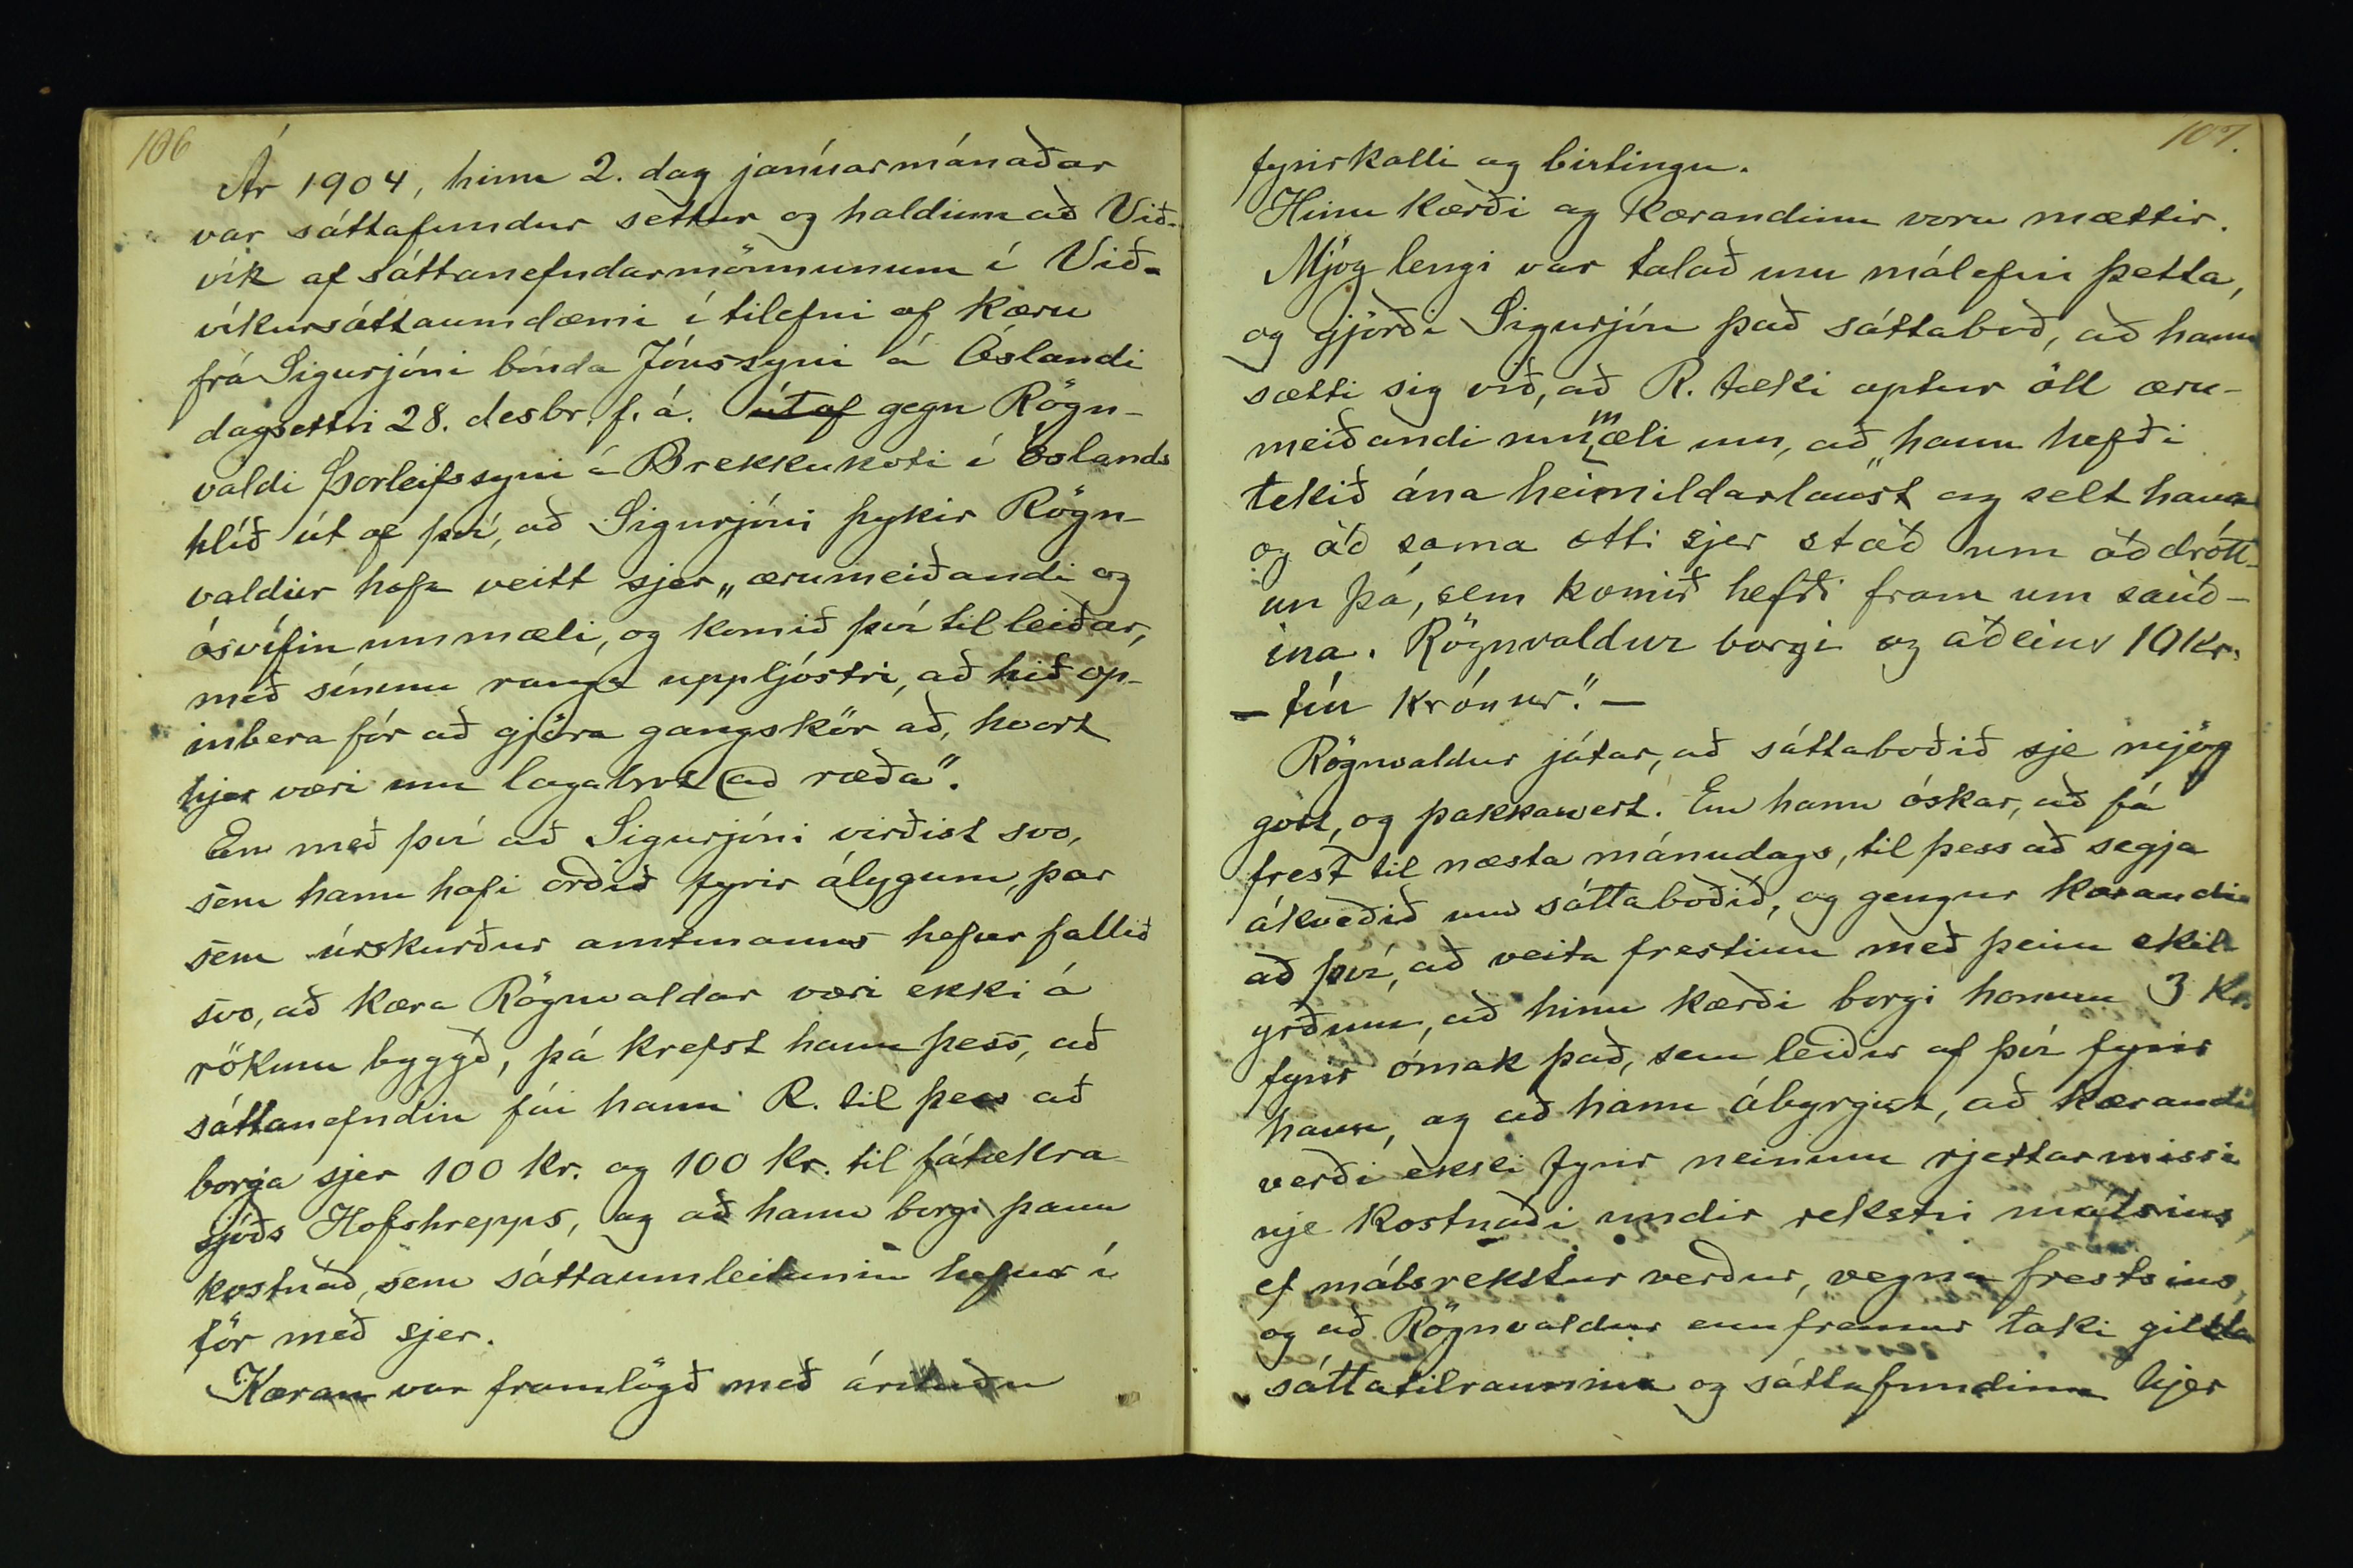 106
Ár 1904, hinn 2. dag janúarmánaðar
var sáttafundur settur og haldinn að Við-
vík af sáttanefndarmönnunum í Við-
víkursáttaumdæmi í tilefni af kæru
frá Sigurjóni bónda Jónssyni á Óslandi
dagsettri 28. desbr. f. á. út af gegn Rögn-
valdi Þorleifssyni á Brekkukoti í Óslands
hlíð út af því, að Sigurjóni þykir Rögn-
valdur hafa veitt sjer „ærumeiðandi og
ósvífin ummæli, og komið því til leiðar,
með sínum ranga uppljóstri, að hið op-
inbera fór að gjöra gangskör að, hvort
hjer væri um lagabrot að ræða".
En með því að Sigurjóni virðist svo,
sem hann hafi orðið fyrir álygum, þar
sem úrskurður amtmanns hefur fallið
svo, að kæra Rögnvaldar væri ekki á
rökum byggð, þá krefst hann þess, að
sáttanefndin fái hann R. til þess að
borga sjer 100 kr. og 100 kr. til fátækra
sjóðs Hofshrepps, og að hann borgi þann
kostnað, sem sáttaumleitunin hefur í
för með sjer.
Kæran var framlögð með árituðu
107.
fyrirkalli og birtingu.
Hinn kærði og kærandinn voru mættir.
Mjög lengi var talað um málefni þetta,
og gjörði Sigurjón það sáttaboð, að hann
sætti sig við, að R. tæki aptur öll æru-
meiðandi ummæli um, að „hann hefði
tekið ána heimildarlaust og selt hana
og að sama ætti sjer stað um aðdrótt-
un þá, sem komið hefði fram um sauð-
ina. Rögnvaldur borgi og aðeins 10 kr.
— tíu krónur." —
Rögnvaldur játar, að sáttaboðið sje mjög
gott, og þakkavert. En hann óskar, að fá
frest til næsta mánudags, til þess að segja
ákveðið um sáttaboðið, og gengur kærandi
að því, að veita frestinn með þeim skil-
yrðum, að hinn kærði borgi honum 3 kr.
fyrir ómak það, sem leiðir af því fyrir
hann, og að hann ábyrgist, að kærandi
verði ekki fyrir neinum rjettarmissi
nje kostnaði undir rekstri málsins,
ef málsrekstur verður, vegna frestsins,
og að Rögnvaldur ennfremur taki gilda
sáttatilraunina og sáttafundinn hjer